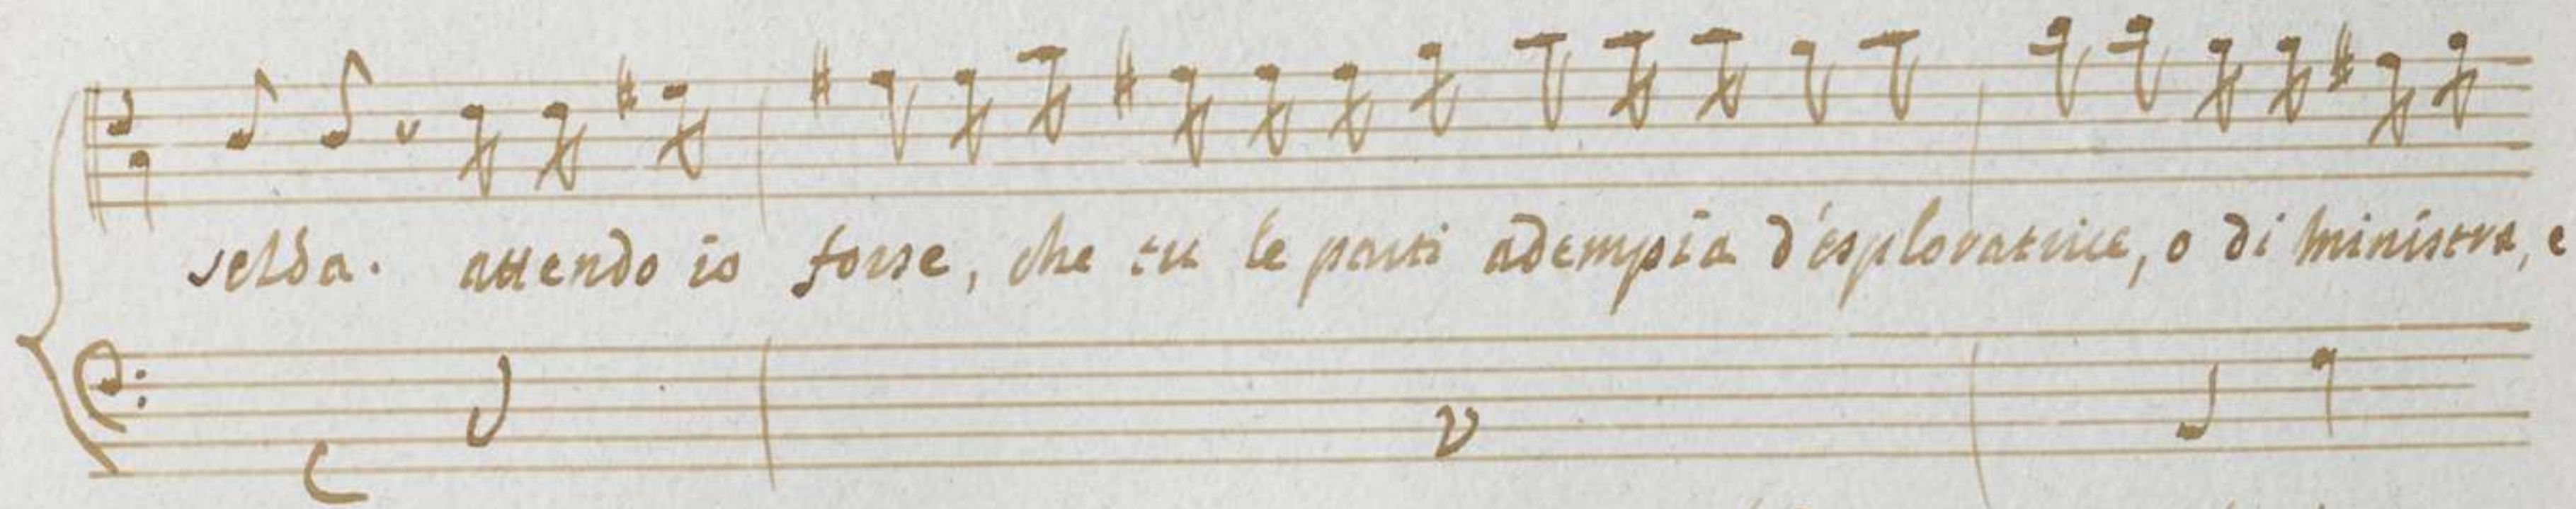 selda. attendo io forse, che tu le parti adempia d'esploratrice, o di ministra, e